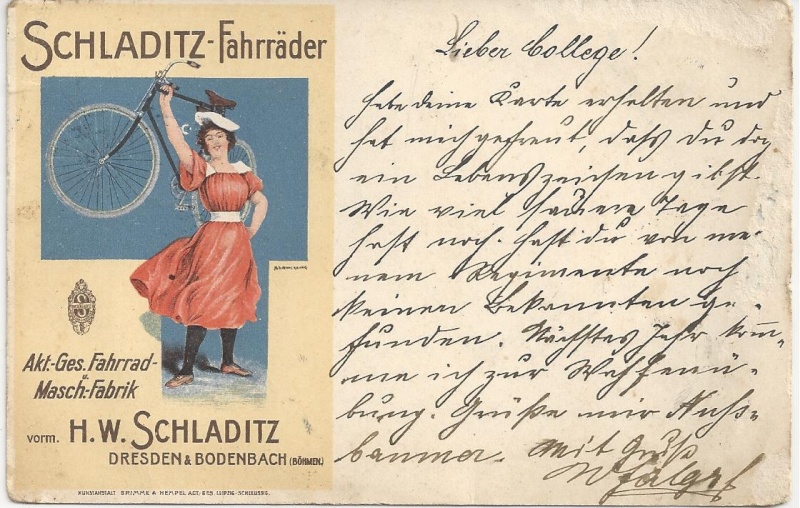 SCHLADITZ-Fahrräder
Akt.-Ges. Fahrrad-
u.
Masch.-Fabrik
vorm. H.W. SCHLADITZ
DRESDEN & BODENBACH (BÖHMEN.)
KUNSTANSTALT GRIMME & HEMPEL ACT.-GES. LEIPZIG-SCHLEUSSIG.
Lieber College!
Habe deine Karte erhalten und
hat mich gefreut, dass du doch
ein Lebenszeichen gibst.
Wie viel sauere Tage
hast noch. Hast du von mei-
nem Regimente noch
keinen Bekannten ge-
funden. Nächstes Jahr kom-
me ich zur Waffenü-
bung. Grüße mir Nuss-
baumer. Mit Gruß